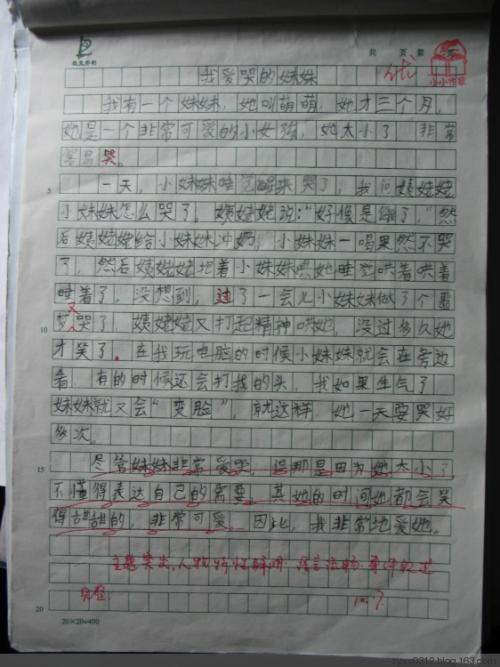 共 页 第 页
优
我爱哭的妹妹
我有一个妹妹，她叫萌萌，她才三个月，
她是一个非常可爱的小女孩，她太小了 非常
容易哭。
5
一天，小妹妹睡觉醒来哭了，我问姨姥姥
小妹妹怎么哭了。姨姥姥说："好像是饿了，"然
后姨姥姥给小妹妹冲奶，小妹妹一喝果然不哭
了，然后姨姥姥抱着小妹妹哄她睡觉哄着哄着
睡着了，没想到，过了一会儿小妹妹做了个噩
10
梦又哭了，姨姥姥又打起精神哄她，没过多久她
才笑了。在我玩电脑的时候小妹妹就会在旁边
看 有的时候还会打我的头，我如果生气了
妹妹就又会"变脸"，就这样 她一天要哭好
多次。
15
尽管妹妹非常爱哭，但那是因为她太小了
不懂得表达自己的需要。其她的时间她都会笑
得甜甜的，非常可爱 因此，我非常地爱她。
主题突出，人物特征鲜明 语言流畅
完整!
20
20×20=400